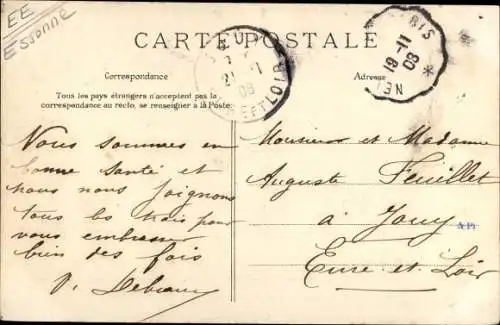 EE
Essonne
CARTE POSTALE
Correspondance
Tous les pays étrangers n'acceptent pas la
correspondance au recto, se renseigner à la Poste.
Nous sommes en
bonne santé et
nous nous joignons
tous les trois pour
vous embrasser
bien des fois
Adresse
PARIS
19-11
08
Monsieur et Madame
Auguste Feuillet
à Jouy
Eure-et-Loir